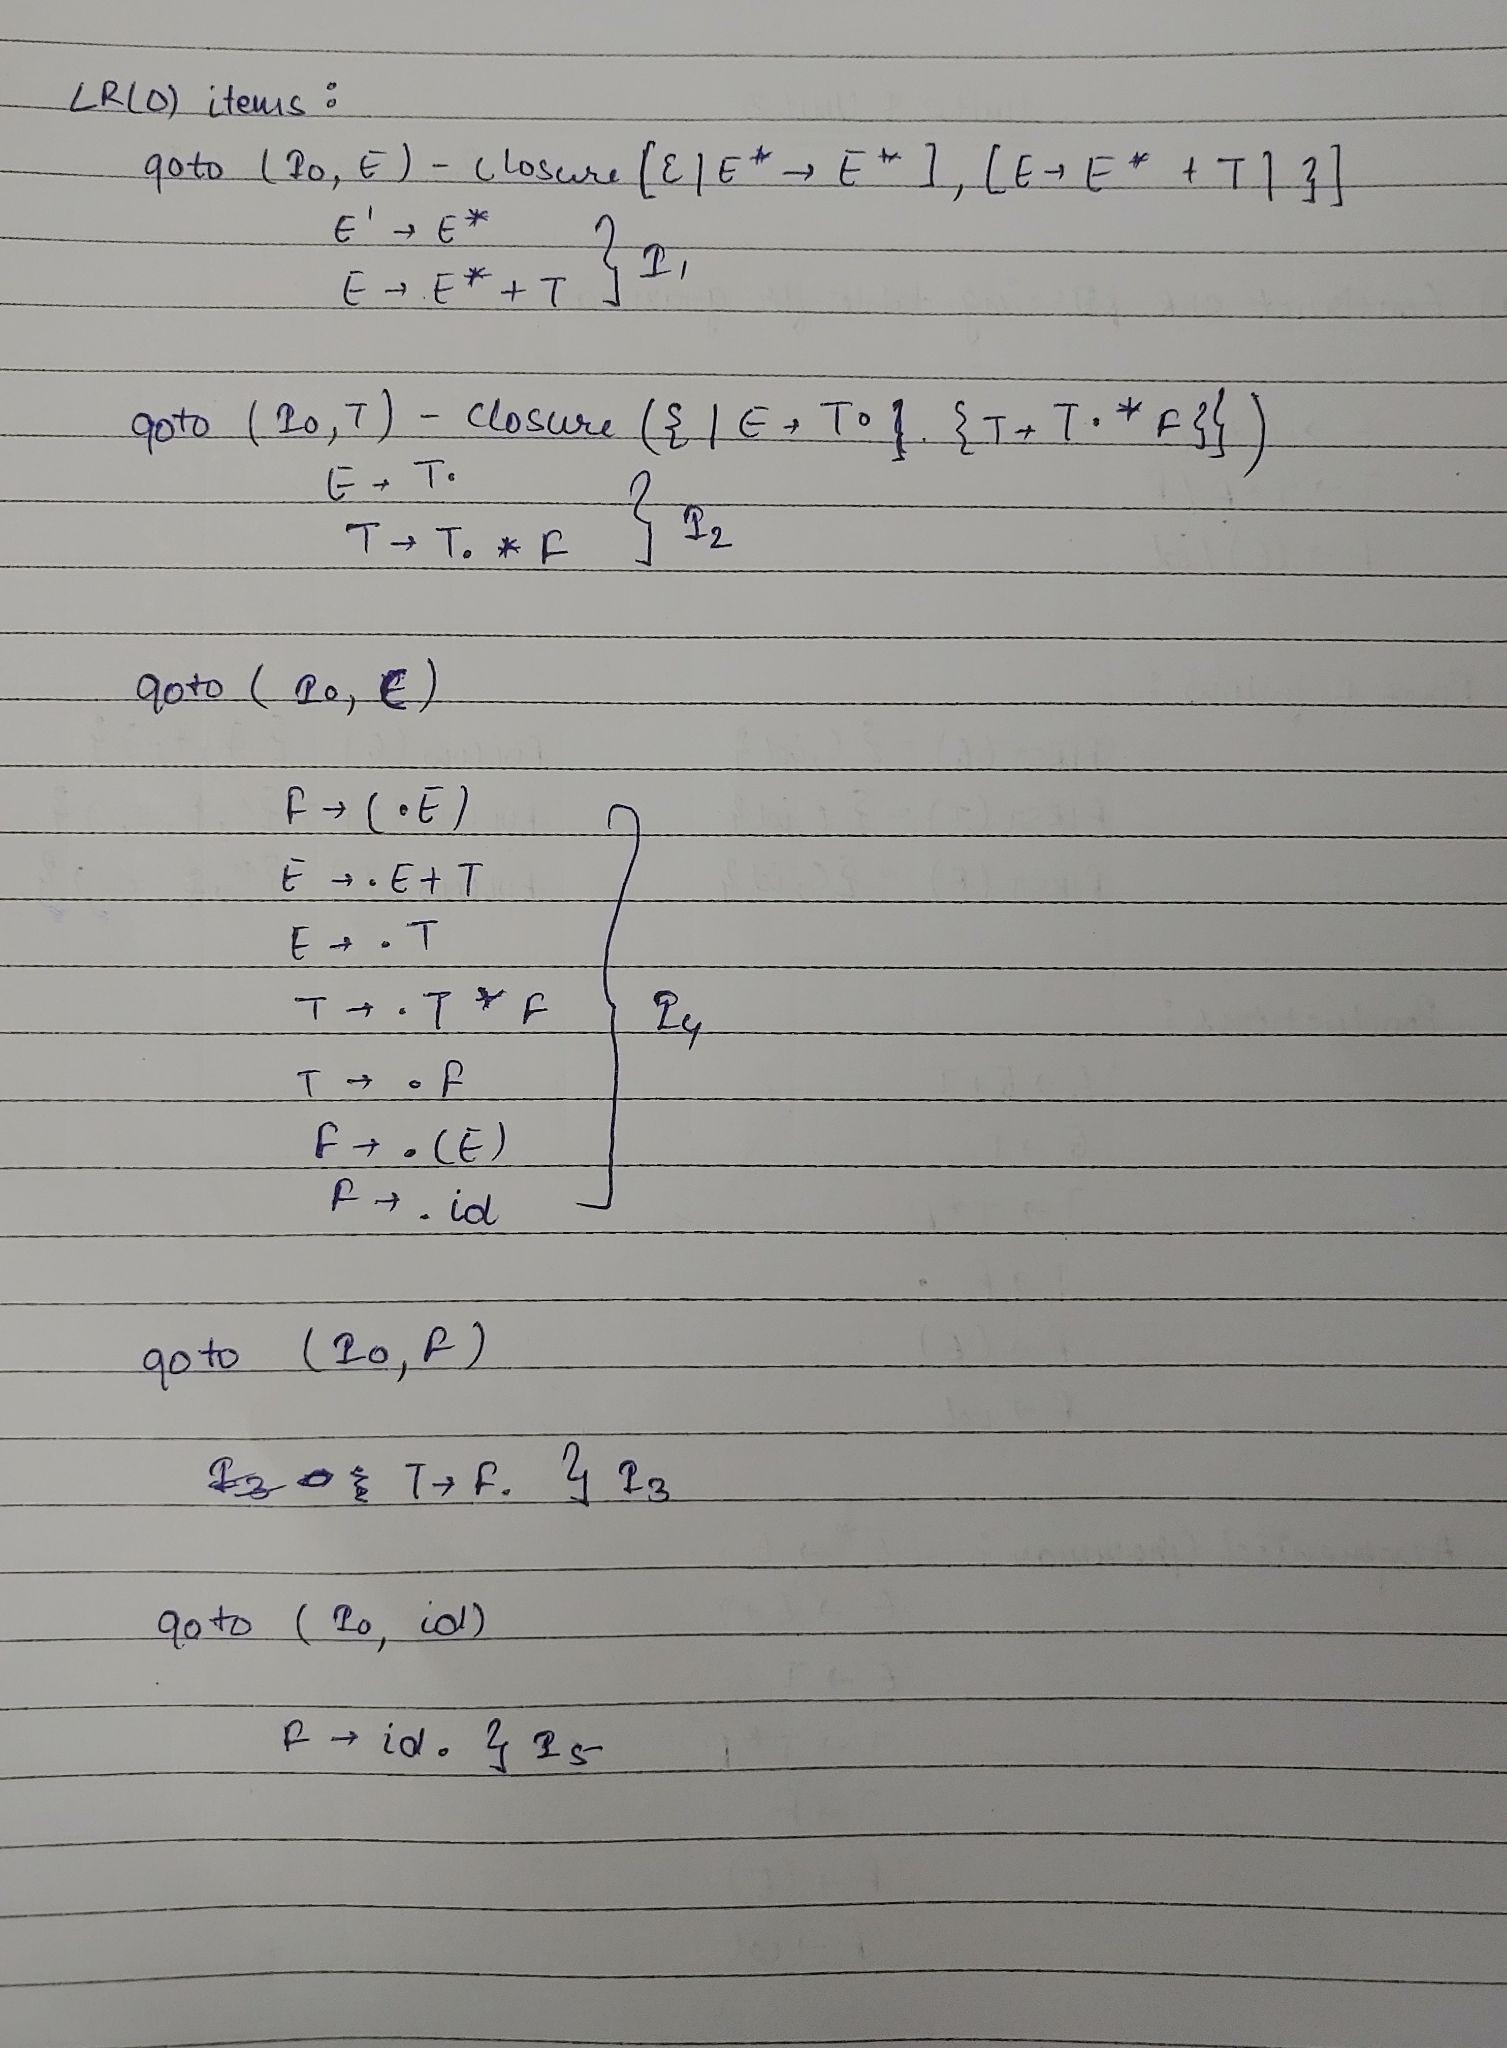 LR(0) items :
goto (I0, E) - closure [{[E* → E*], [E → E* + T]}]
E' → E*
E → E* + T } I1
goto (I0, T) - closure ({[E → T.] {T → T.* F}})
E → T.
T → T. * F } I2
goto (I0, E)
F → (.E)
E → .E + T
E → .T
T → .T * F } I4
T → .F
F → .(E)
F → .id
goto (I0, F)
{ T → F. } I3
goto (I0, id)
F → id. } I5